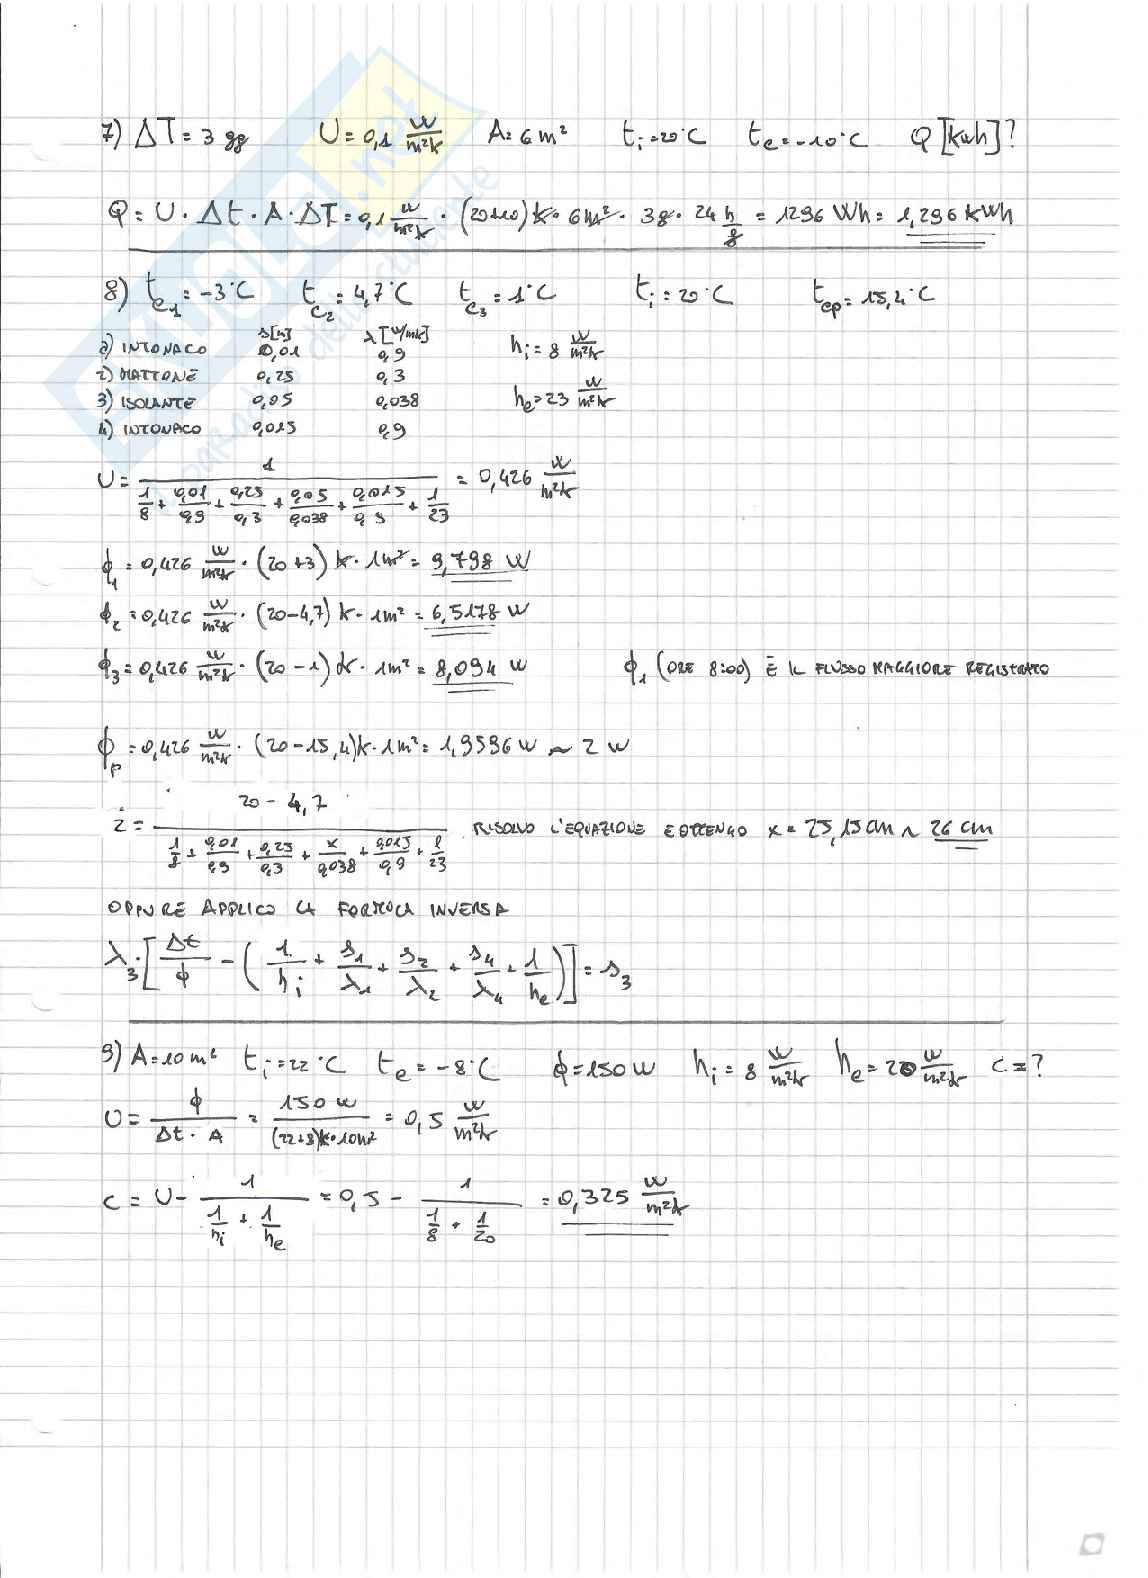 7) ΔT = 3 gg U = 0,1 W/m²K A = 6 m² ti = 20°C te = -10°C Q [kWh]?
Q = U · Δt · A · ΔT = 0,1 W/m²K · (20+10) K · 6 m² · 3 g · 24 h/g = 1296 Wh = 1,296 kWh
8) te1 = -3°C te2 = 4,7°C te3 = 1°C ti = 20°C tep = 15,4°C
s[m] λ[W/mK]
1) INTONACO 0,01 0,9 hi = 8 W/m²K
2) MATTONE 0,25 0,3
3) ISOLANTE 0,05 0,038 he = 23 W/m²K
4) INTONACO 0,015 0,9
U = 1 / (1/8 + 0,01/0,9 + 0,25/0,3 + 0,05/0,038 + 0,015/0,9 + 1/23) = 0,426 W/m²K
ϕ1 = 0,426 W/m²K · (20+3) K · 1m² = 9,798 W
ϕ2 = 0,426 W/m²K · (20-4,7) K · 1m² = 6,5178 W
ϕ3 = 0,426 W/m²K · (20-1) K · 1m² = 8,094 W ϕ1 (ORE 8:00) È IL FLUSSO MAGGIORE REGISTRATO
ϕp = 0,426 W/m²K · (20-15,4) K · 1m² = 1,9596 W ~ 2 W
2 = (20 - 4,7) / (1/8 + 0,01/0,9 + 0,25/0,3 + x/0,038 + 0,015/0,9 + 1/23) RISOLVO L'EQUAZIONE E OTTENGO x = 25,15 cm ~ 26 cm
OPPURE APPLICO LA FORMULA INVERSA
λ3 · [Δt/ϕ - (1/hi + s1/λ1 + s2/λ2 + s4/λ4 + 1/he)] = s3
9) A = 10 m² ti = 22°C te = -8°C ϕ = 150 W hi = 8 W/m²K he = 20 W/m²K C = ?
U = ϕ / (Δt · A) = 150 W / ((22+8) K · 10m²) = 0,5 W/m²K
C = U - 1 / (1/hi + 1/he) = 0,5 - 1 / (1/8 + 1/20) = 0,325 W/m²K